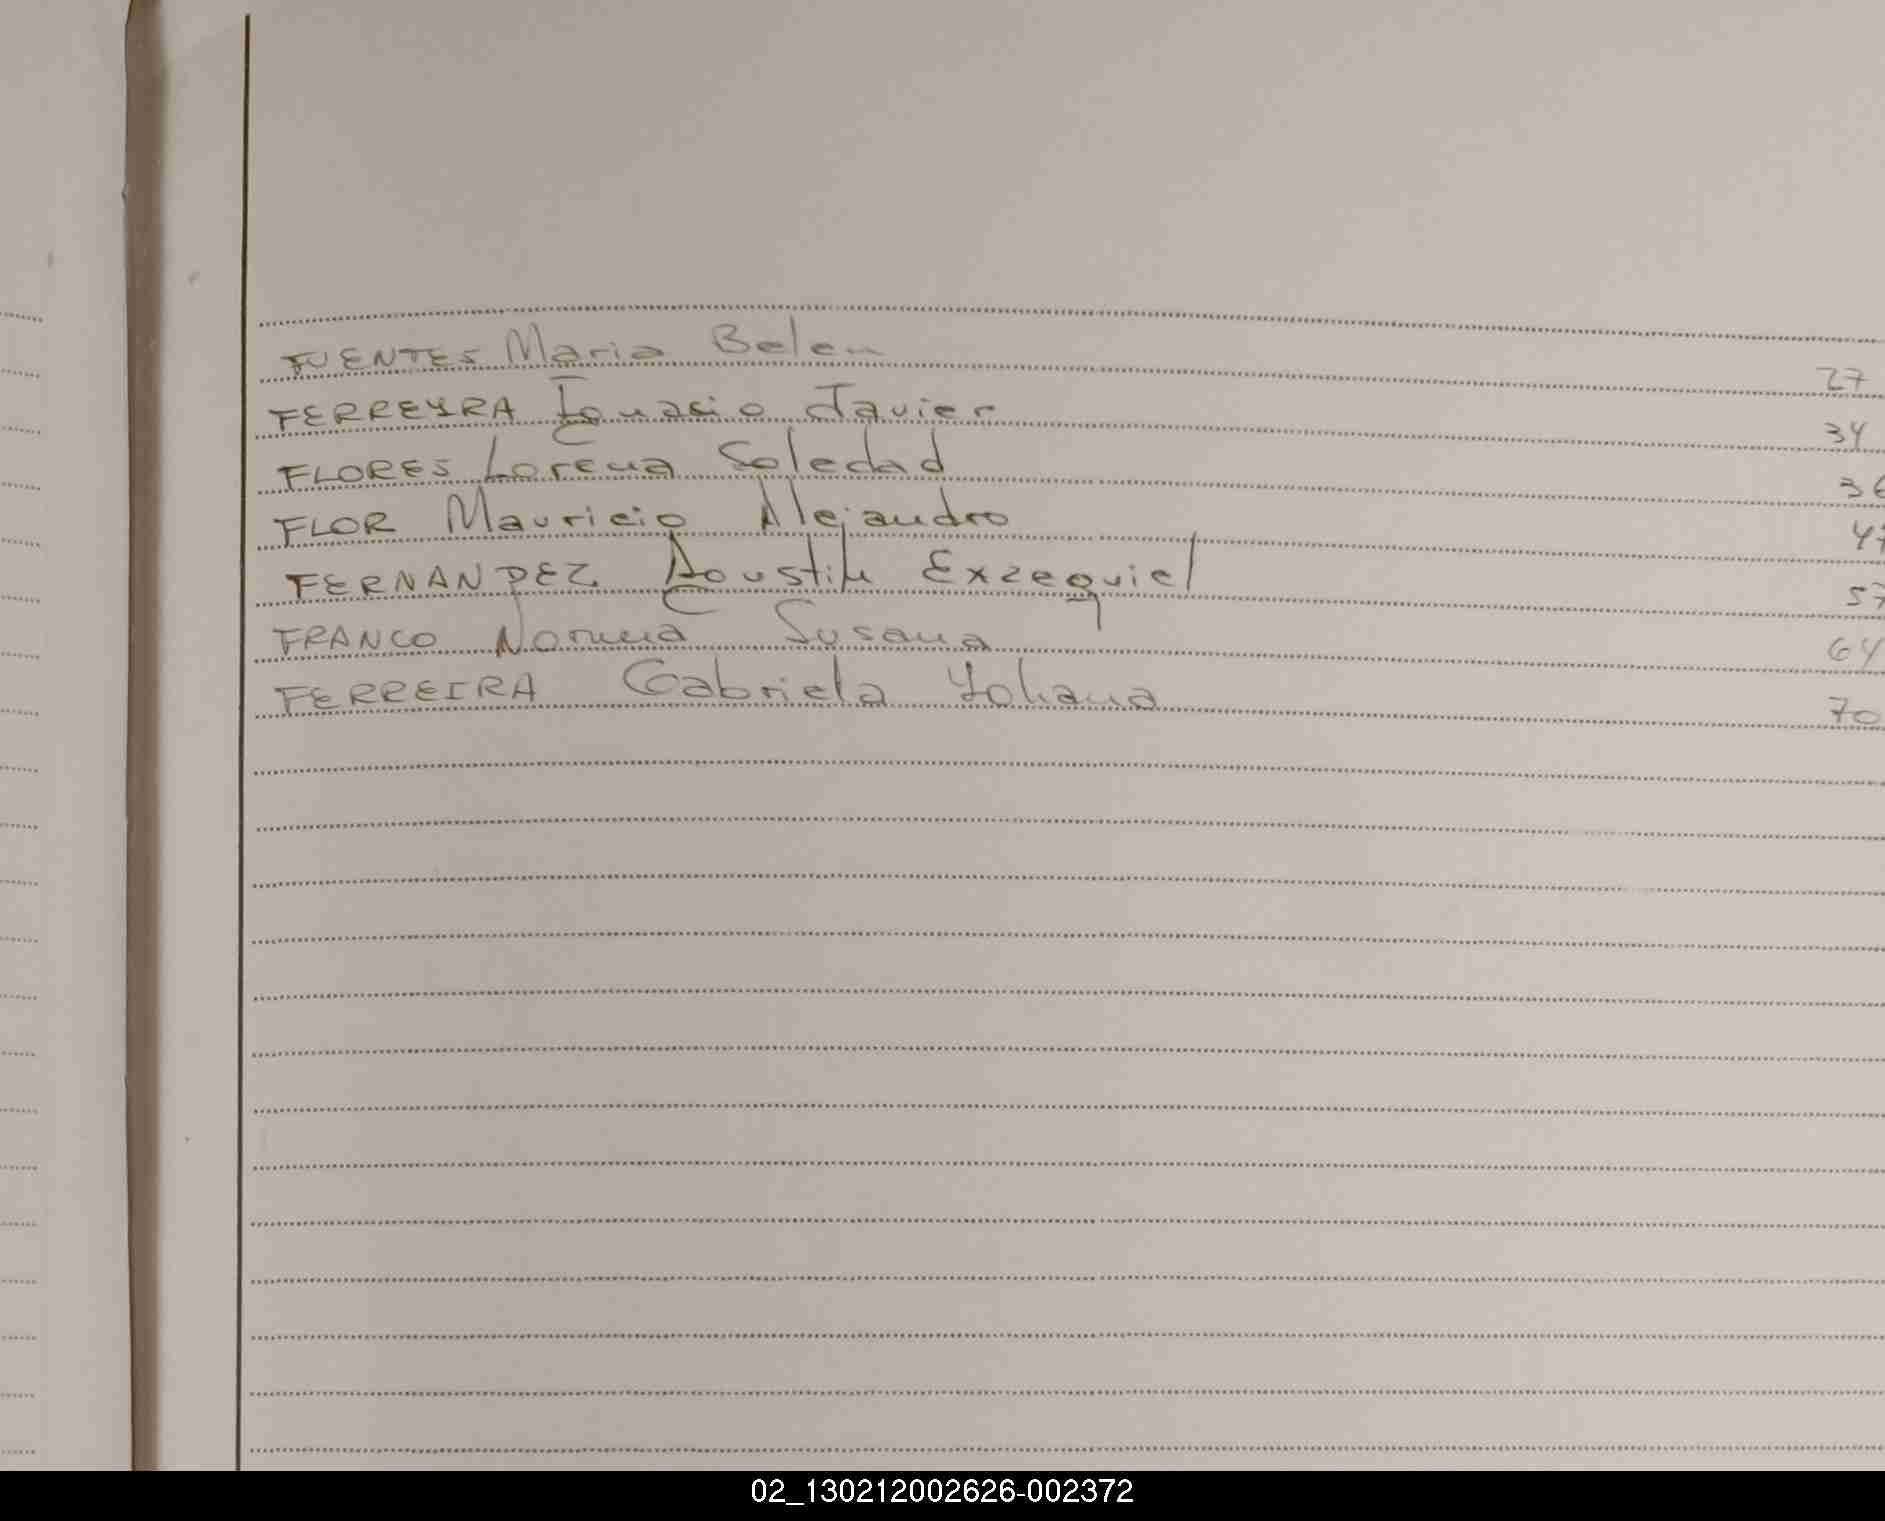 FUENTES Maria Belen 27
FERREYRA Ignacio Javier 34
FLORES Lorena Soledad 36
FLOR Mauricio Alejandro 47
FERNANDEZ Agustin Exzequiel 57
FRANCO Norma Susana 64
FERREIRA Gabriela Yohana 70
02_130212002626-002372